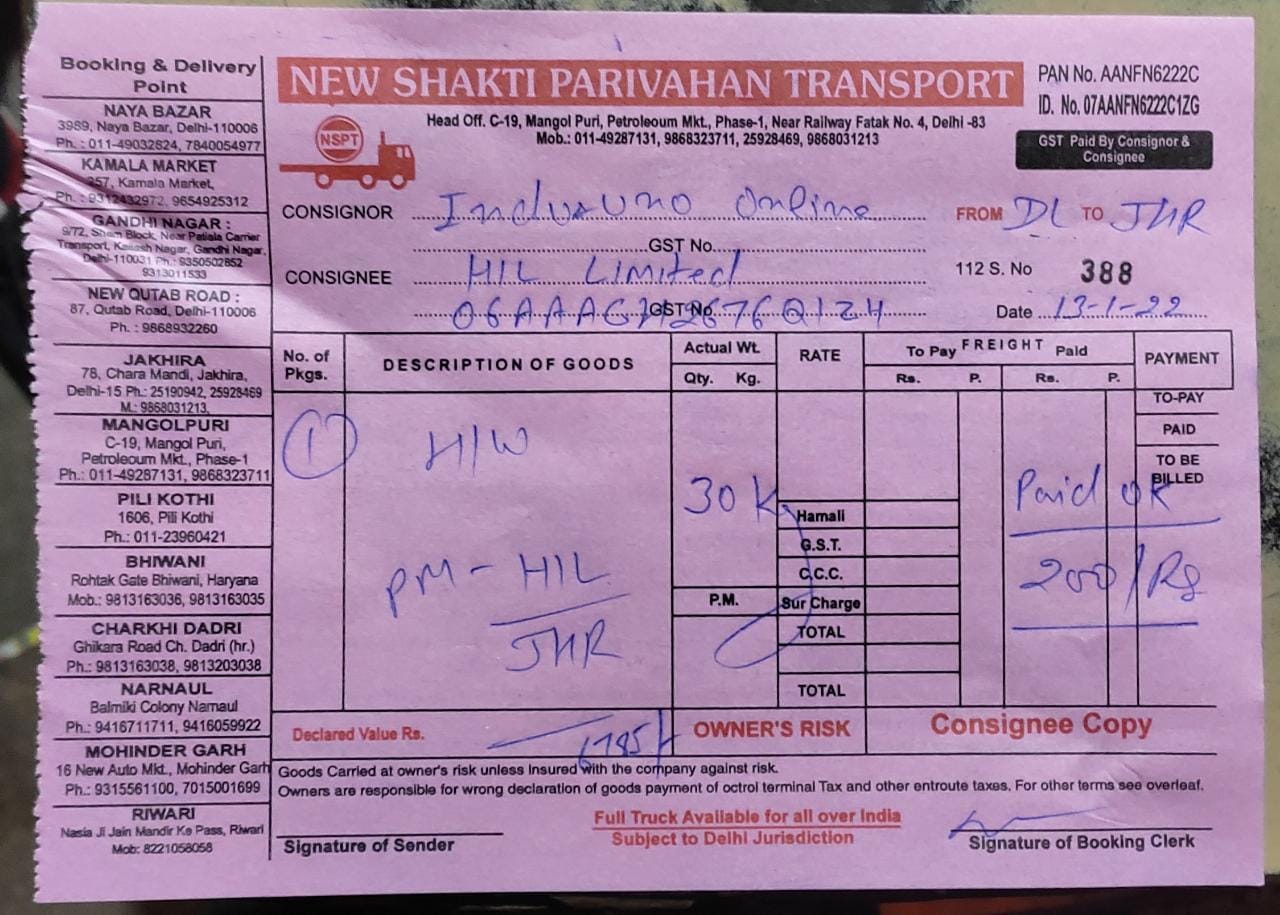 Booking & Delivery
Point
NAYA BAZAR
3989, Naya Bazar, Delhi-110006
Ph. : 011-49032824, 7840054977
KAMALA MARKET
257, Kamala Market,
Ph. : 9312432972, 9654925312
GANDHI NAGAR :
9/72, Sham Block, Near Patiala Carrier
Transport, Kailash Nagar, Gandhi Nagar,
Delhi-110031 Ph.: 9350502852
9313011533
NEW QUTAB ROAD :
87, Qutab Road, Delhi-110006
Ph. : 9868932260
JAKHIRA
78, Chara Mandi, Jakhira,
Delhi-15 Ph.: 25190942, 25928469
M.: 9868031213,
MANGOLPURI
C-19, Mangol Puri,
Petroleoum Mkt., Phase-1
Ph.: 011-49287131, 9868323711
PILI KOTHI
1606, Pili Kothi
Ph.: 011-23960421
BHIWANI
Rohtak Gate Bhiwani, Haryana
Mob.: 9813163036, 9813163035
CHARKHI DADRI
Ghikara Road Ch. Dadri (hr.)
Ph.: 9813163038, 9813203038
NARNAUL
Balmiki Colony Narnaul
Ph.: 9416711711, 9416059922
MOHINDER GARH
16 New Auto Mkt., Mohinder Garh
Ph.: 9315561100, 7015001699
RIWARI
Nasia Ji Jain Mandir Ke Pass, Riwari
Mob: 8221058058
NEW SHAKTI PARIVAHAN TRANSPORT
PAN No. AANFN6222C
ID. No. 07AANFN6222C1ZG
Head Off. C-19, Mangol Puri, Petroleoum Mkt., Phase-1, Near Railway Fatak No. 4, Delhi -83
Mob.: 011-49287131, 9868323711, 25928469, 9868031213
GST Paid By Consignor &
Consignee
NSPT
CONSIGNOR Induxuno Online FROM DL TO JHR
GST No.
CONSIGNEE HIL Limited 112 S. No 388
GST No. Date 13-1-22
No. of Pkgs. DESCRIPTION OF GOODS Actual Wt. Qty. Kg. RATE FREIGHT To Pay Rs. P. Paid Rs. P. PAYMENT
TO-PAY
PAID
TO BE
BILLED
1 H/W
30 Kg Paid OK
Hamali
G.S.T.
PM - HIL C.C.C. 200/Rs
P.M. Sur Charge
JHR TOTAL
TOTAL
Declared Value Rs. 6785/- OWNER'S RISK Consignee Copy
Goods Carried at owner's risk unless Insured with the company against risk.
Owners are responsible for wrong declaration of goods payment of octrol terminal Tax and other entroute taxes. For other terms see overleaf.
Full Truck Available for all over India
Subject to Delhi Jurisdiction
Signature of Sender
Signature of Booking Clerk